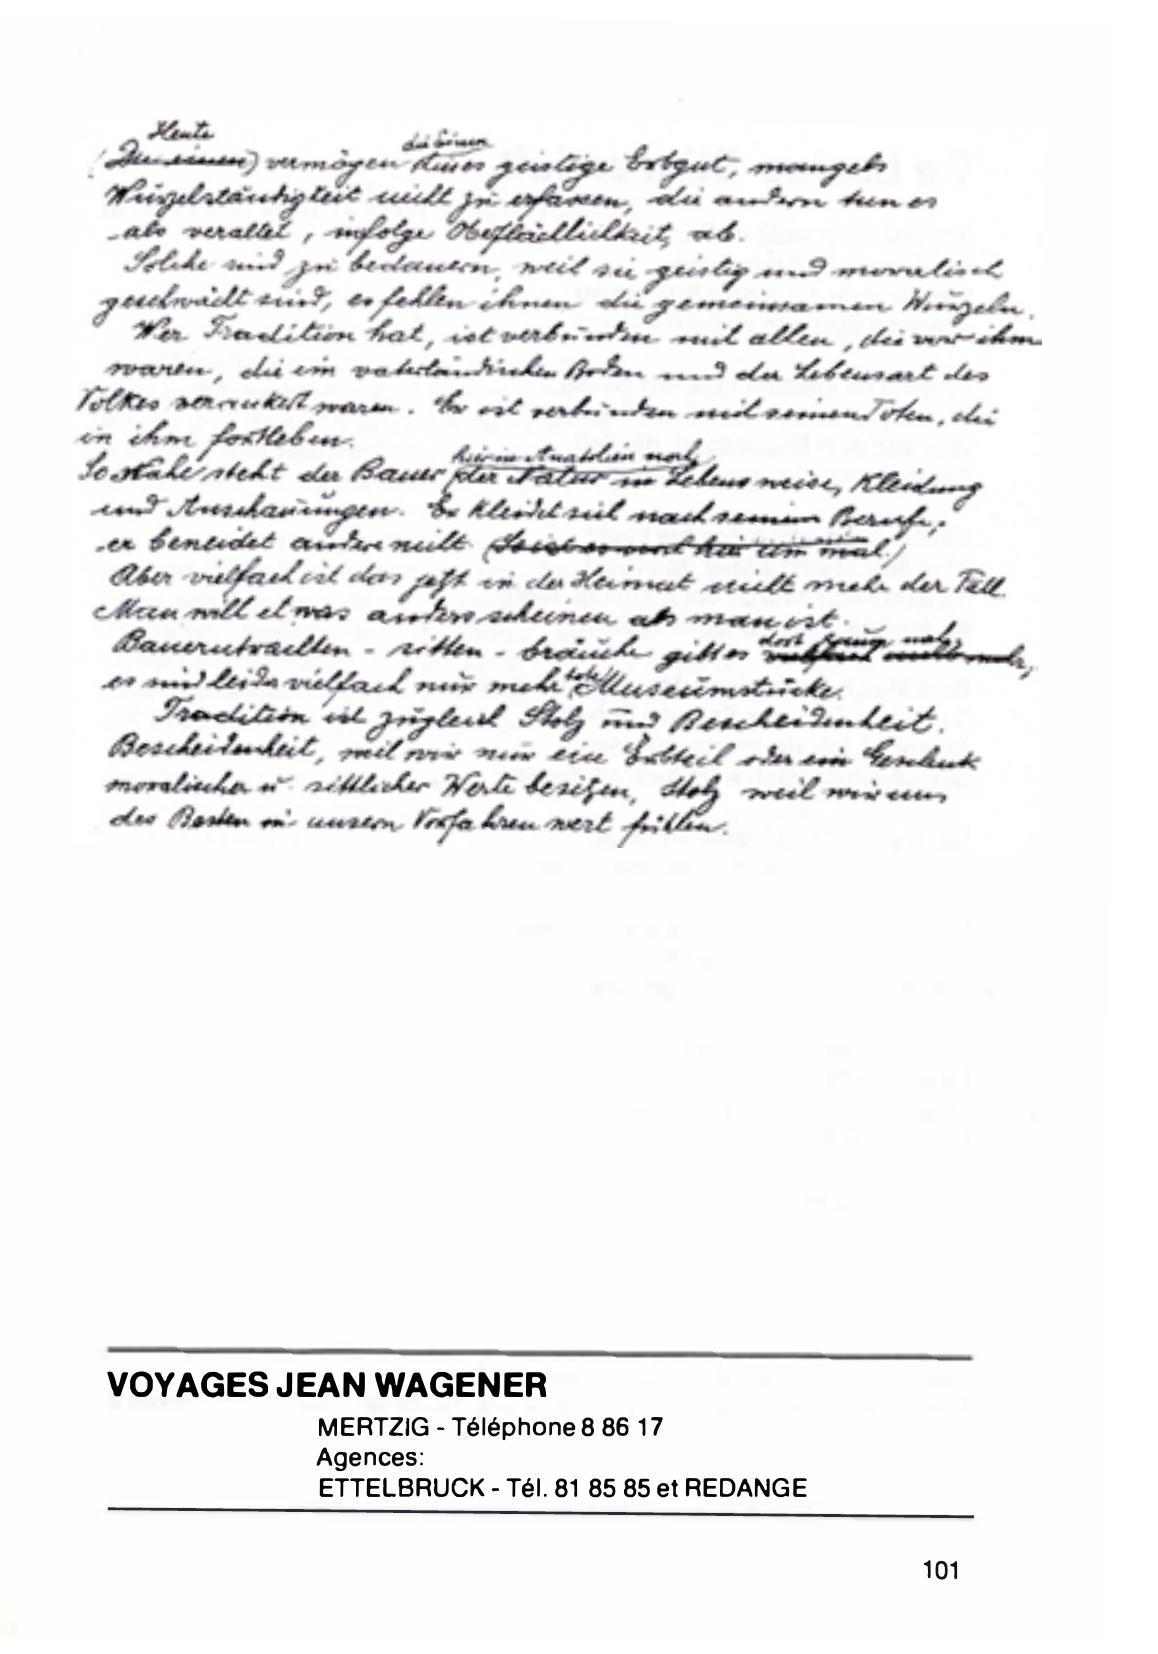 Heute die Einen
(Die einen) vermögen dieses geistige Erbgut, mangels
Wurzelständigkeit nicht zu erfassen, die andern tun es
als veraltet, infolge Oberflächlichkeit, ab.
Solche sind zu bedauern, weil sie geistig und moralisch
geschwächt sind, es fehlen ihnen die gemeinsamen Wurzeln.
Wer Tradition hat, ist verbunden mit allen, die vor ihm
waren, die im vaterländischen Boden und der Lebensart des
Volkes verankert waren. Er ist verbunden mit seinen Toten, die
in ihm fortleben.
hier in Anatolien noch
So Nahe steht der Bauer der Natur in Lebensweise, Kleidung
und Anschauungen. Er kleidet sich nach seinem Berufe,
er beneidet andere nicht.
Aber vielfach ist das jetzt in der Heimat nicht mehr der Fall.
Man will etwas anders scheinen als man ist.
dort kaum noch
Bauerntrachten - sitten - bräuche gibt es vielfach nicht mehr,
es sind leider vielfach nur mehr tote Museumstücke.
Tradition ist zugleich Stolz und Bescheidenheit.
Bescheidenheit, weil wir nur ein Erbteil oder ein Geschenk
moralischer u. sittlicher Werte besitzen, Stolz weil wir uns
des Besten in unsern Vorfahren wert fühlen.
VOYAGES JEAN WAGENER
MERTZIG - Téléphone 8 86 17
Agences:
ETTELBRUCK - Tél. 81 85 85 et REDANGE
101